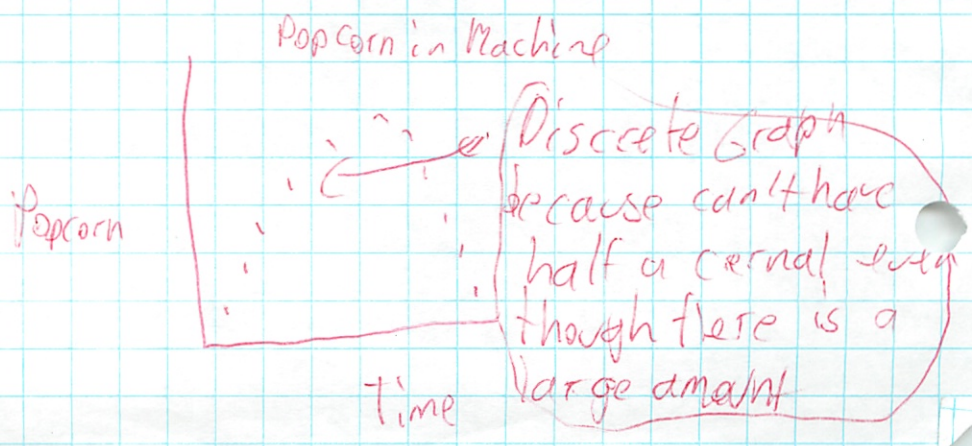 Popcorn in Machine
Popcorn
Time
Discrete Graph
because can't have
half a cernal even
though there is a
large amaint